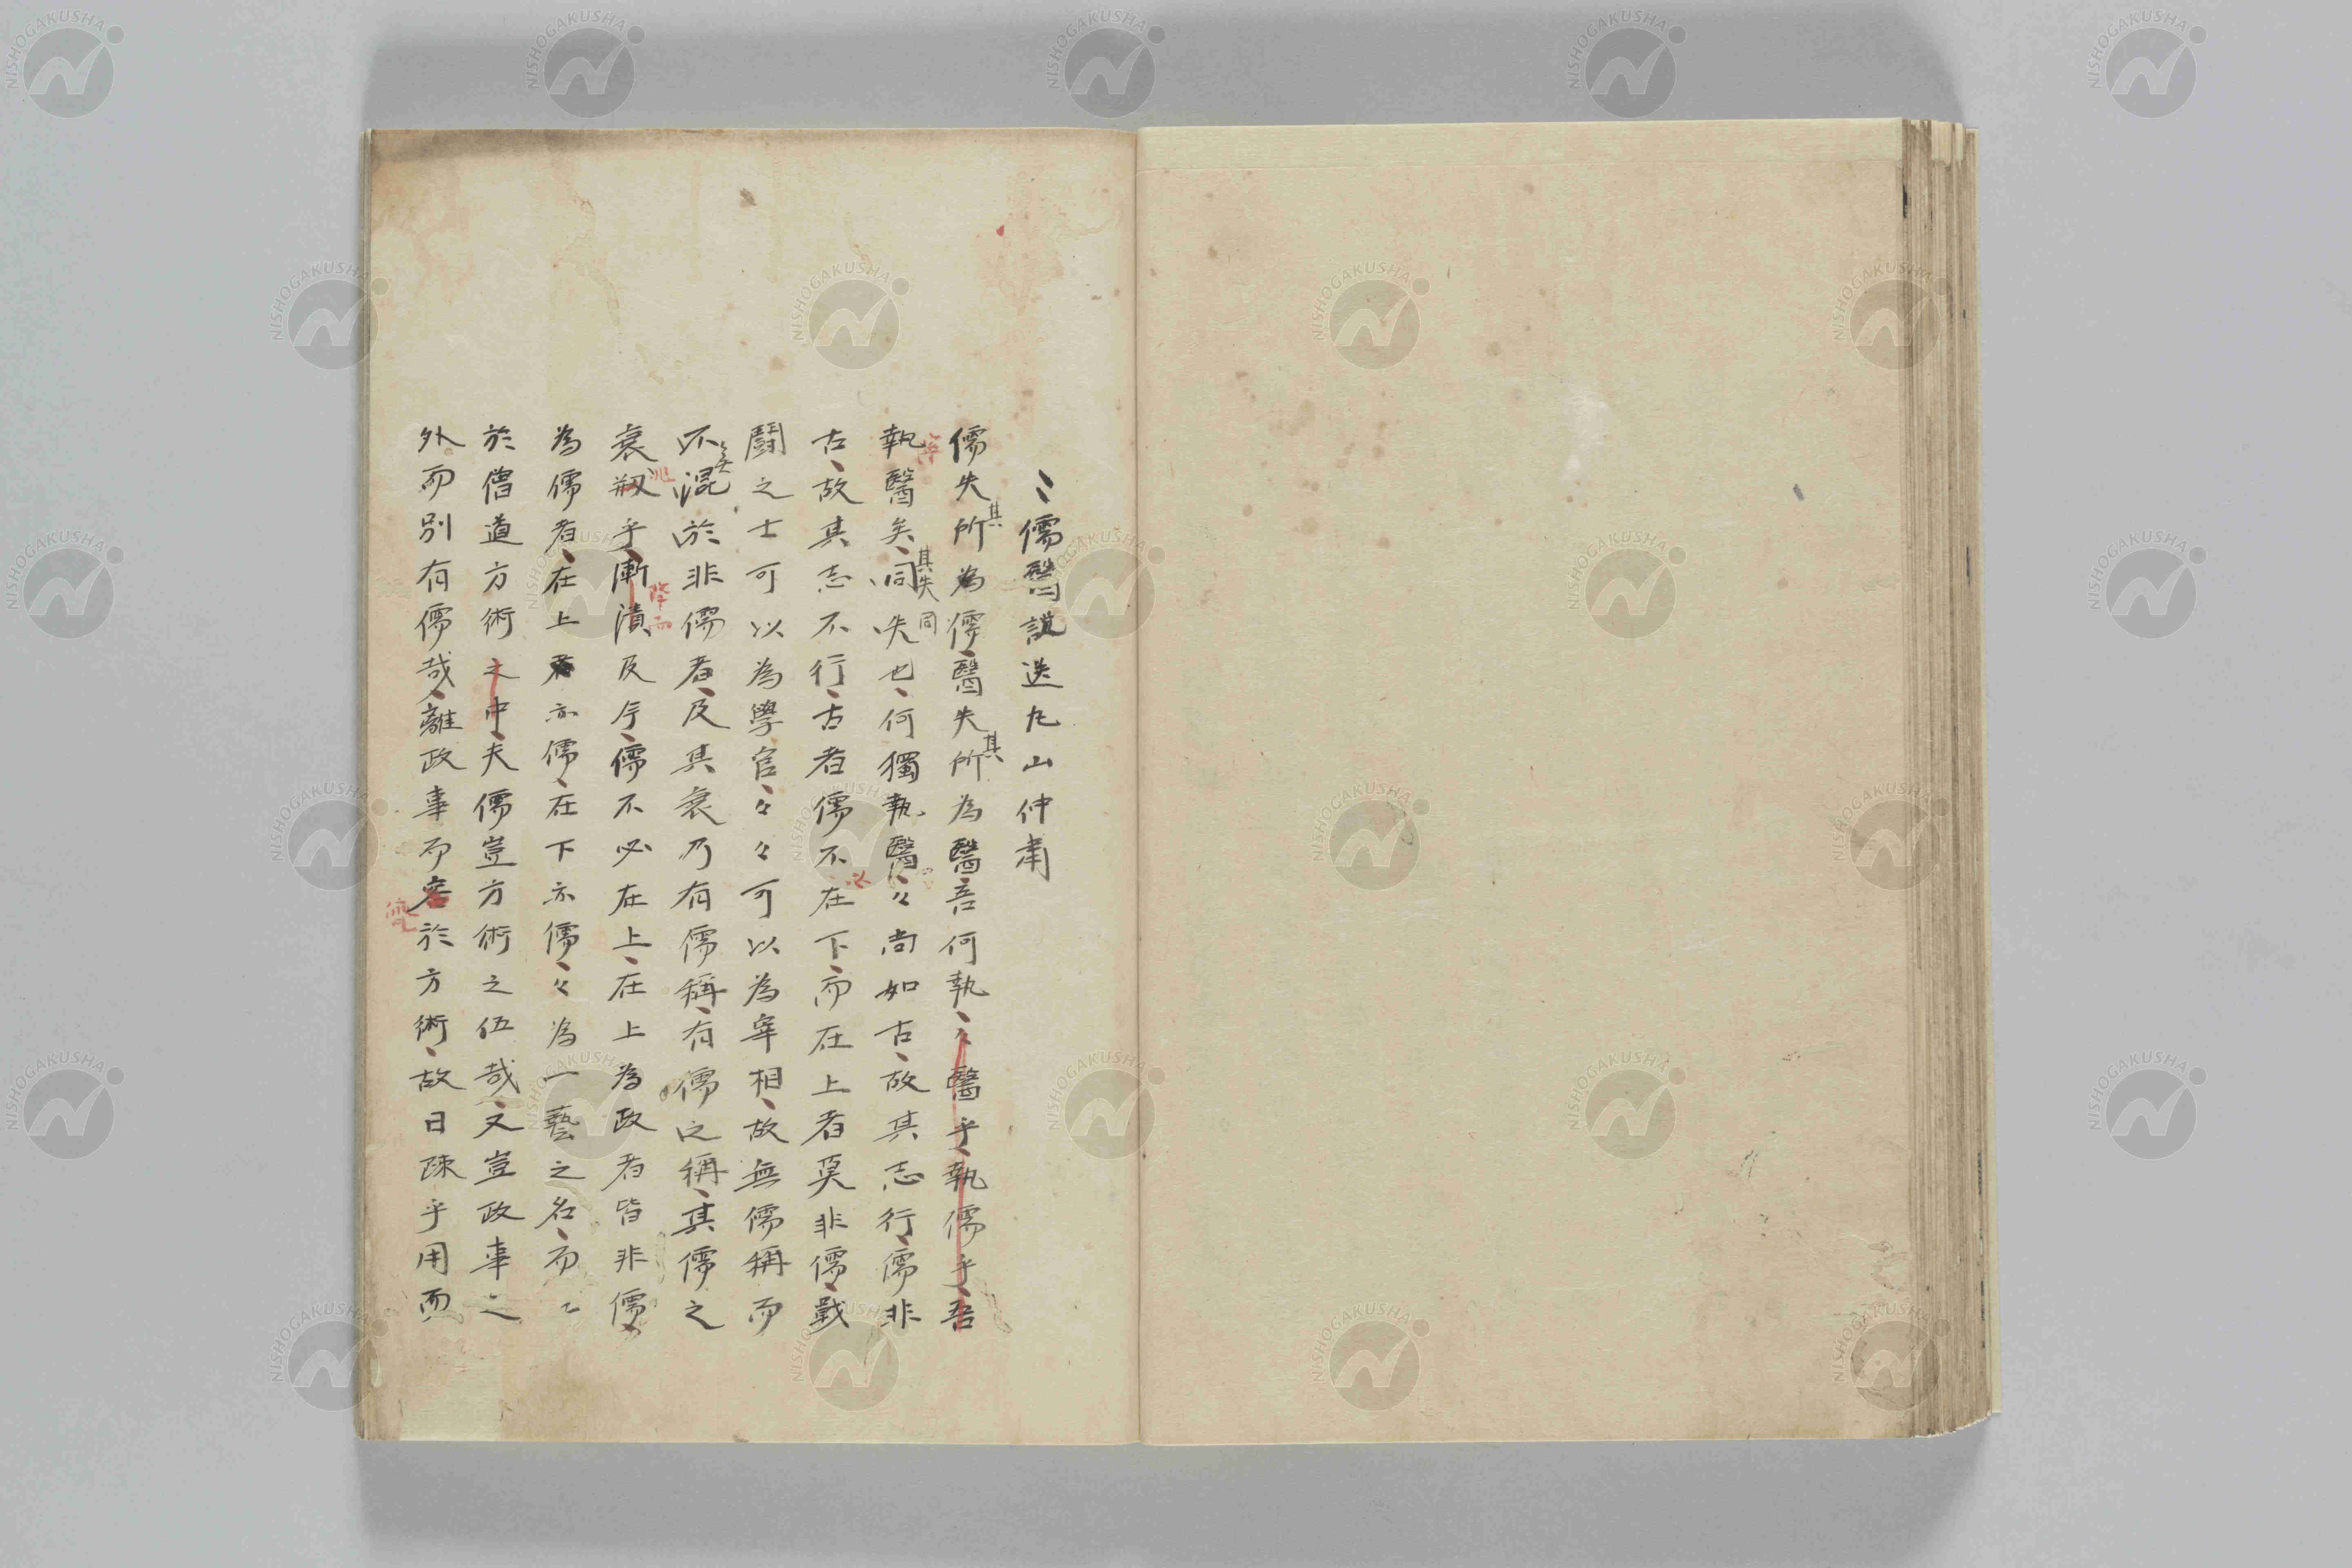 儒醫説送九山仲肅
儒失其所為儒、醫失其所為醫吾何執、々醫乎、執儒乎、吾
執醫矣、其失同同失也、何獨執醫、々尚如古、故其志行、儒非
古、故其志不行、古者儒不必在下、而在上者莫非儒、戰
鬪之士可以為學官、々々可以為宰相、故無儒稱而
不混於非儒者、及其衰乃有儒稱、有儒之稱、其儒之
衰兆乎、漸漬降而及今、儒不必在上、在上為政者皆非儒
為儒者、在上亦儒、在下亦儒、々為一藝之名、而
於僧道方術之中、夫儒豈方術之伍哉、又豈政事之
外而別有儒哉、離政事而於方術、故曰疎乎用而
NISHOGAKUSHA